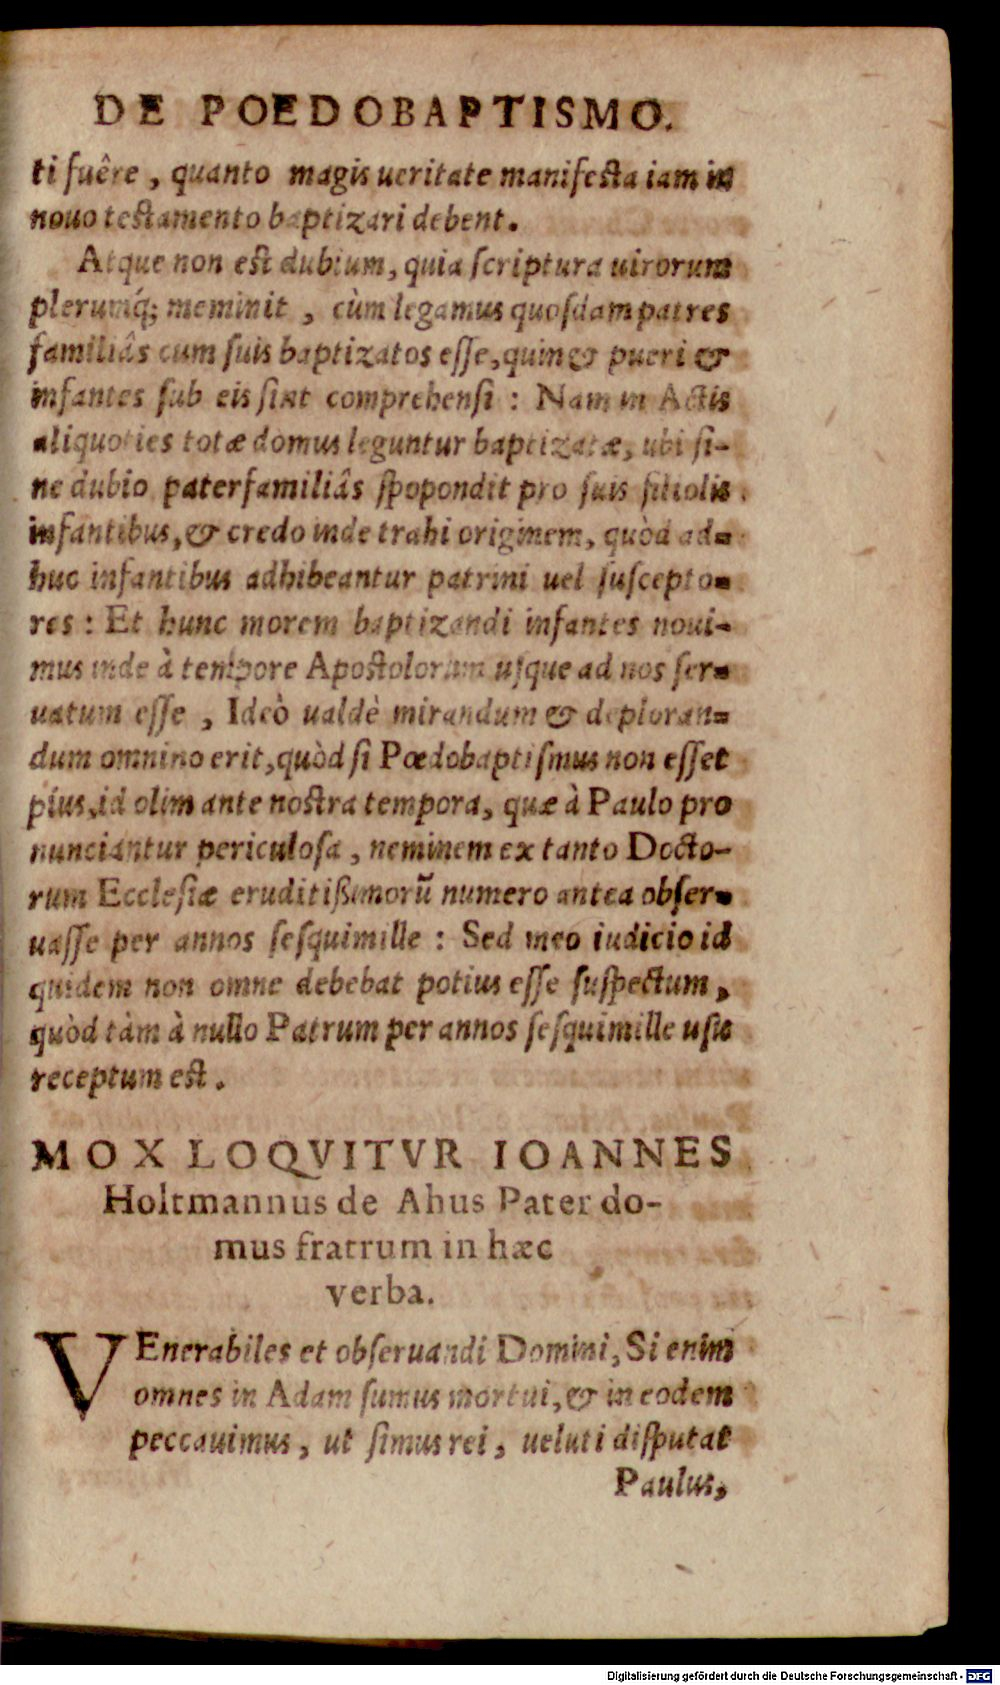 DE POEDOBAPTISMO.
ti fuêre, quanto magis ueritate manifesta iam in
nouo testamento baptizari debent.
Atque non est dubium, quia scriptura uirorum
plerunq́; meminit, cùm legamus quosdam patres
familiâs cum suis baptizatos esse, quin & pueri &
infantes sub eis sint comprehensi: Nam in Actis
aliquoties totæ domus leguntur baptizatæ, ubi si-
ne dubio paterfamiliâs spopondit pro suis filiolis
infantibus, & credo inde trahi originem, quòd ad-
huc infantibus adhibeantur patrini uel suscepto-
res: Et hunc morem baptizandi infantes noui-
mus inde à tempore Apostolorum usque ad nos ser-
uatum esse, Ideò ualdè mirandum & deploran-
dum omnino erit, quòd si Pœdobaptismus non esset
pius, id olim ante nostra tempora, quæ à Paulo pro
nunciantur periculosa, neminem ex tanto Docto-
rum Ecclesiæ eruditißimorū numero antea obser-
uasse per annos sesquimille: Sed meo iudicio id
quidem non omne debebat potius esse suspectum,
quòd tàm à nullo Patrum per annos sesquimille usu
receptum est.
MOX LOQVITVR IOANNES
Holtmannus de Ahus Pater do-
mus fratrum in hæc
verba.
VEnerabiles et obseruandi Domini, Si enim
omnes in Adam sumus mortui, & in eodem
peccauimus, ut simus rei, ueluti disputat
Paulus,
Digitalisierung gefördert durch die Deutsche Forschungsgemeinschaft - DFG